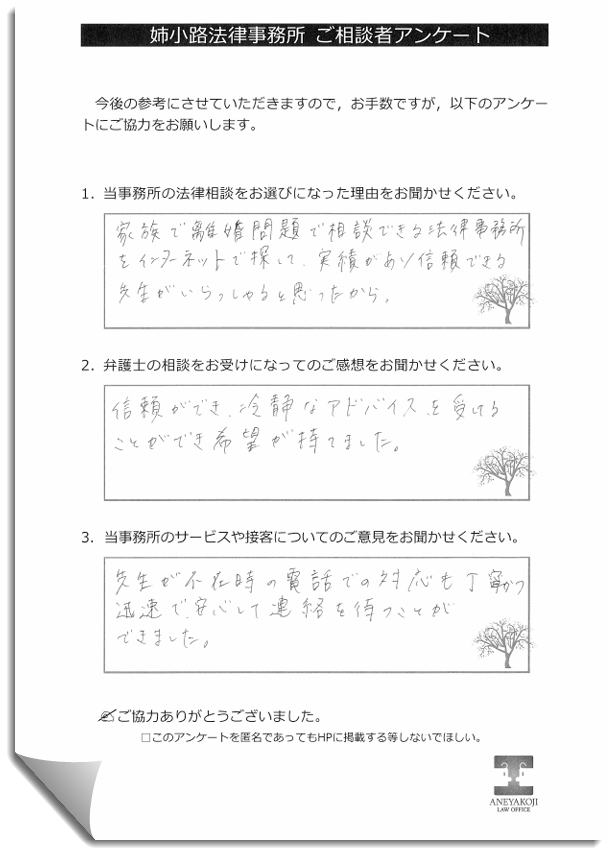 姉小路法律事務所 ご相談者アンケート
今後の参考にさせていただきますので，お手数ですが，以下のアンケー
トにご協力をお願いします。
1．当事務所の法律相談をお選びになった理由をお聞かせください。
家族で離婚問題で相談できる法律事務所
をインターネットで探して、実績があり信頼できる
先生がいらっしゃると思ったから。
2．弁護士の相談をお受けになってのご感想をお聞かせください。
信頼ができ、冷静なアドバイスを受ける
ことができ希望が持てました。
3．当事務所のサービスや接客についてのご意見をお聞かせください。
先生が不在時の電話での対応も丁寧かつ
迅速で、安心して連絡を待つことが
できました。
✍ご協力ありがとうございました。
□このアンケートを匿名であってもHPに掲載する等しないでほしい。
ANEYAKOJI
LAW OFFICE